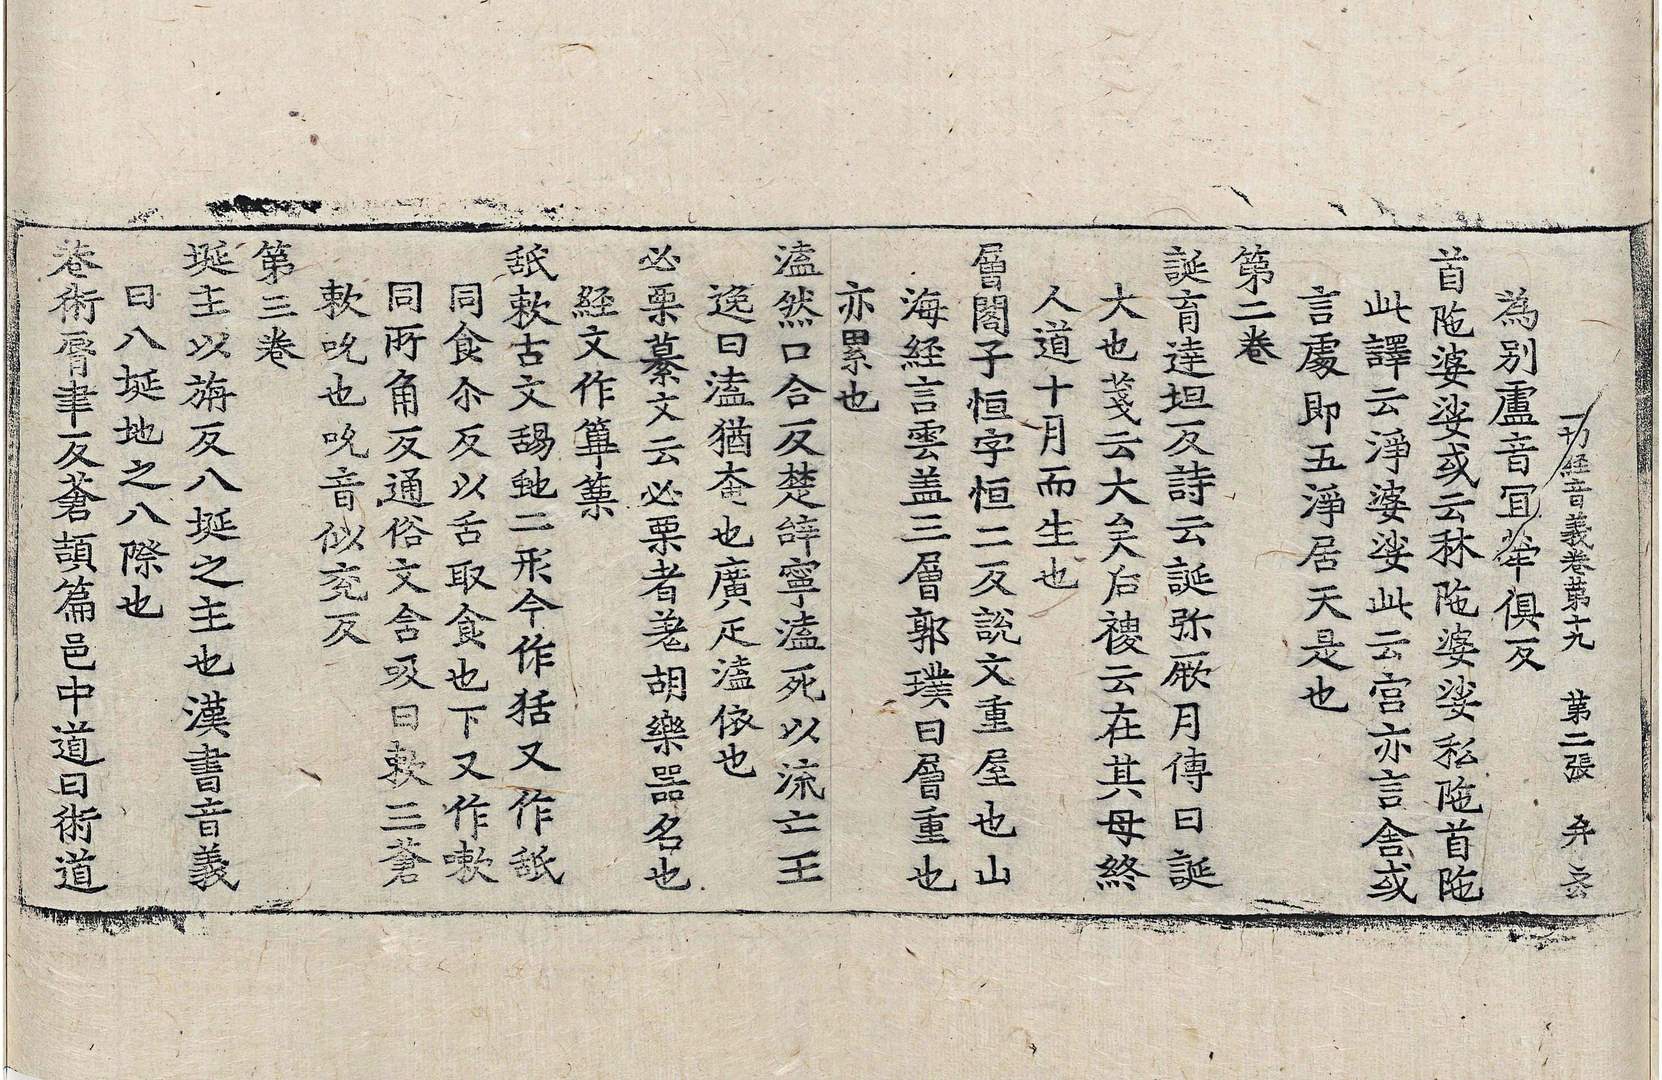 一切経音義卷第十九 第二張 弁
為別盧音冝舉俱反
首陁婆娑或云秝陁婆娑私陁首陁
此譯云淨婆娑此云宫亦言舍或
言處即五淨居天是也
第二卷
誕育達坦反詩云誕弥厥月傳曰誕
大也䇳云大矣后稷云在其母終
人道十月而生也
層閣子恒字恒二反說文重屋也山
海経言雲盖三層郭璞曰層重也
亦累也
溘然口合反楚辝寧溘死以流亡王
逸曰溘猶奄也廣疋溘依也
必栗纂文云必栗者羌胡樂器名也
経文作篳篥
舐軟古文䑛𦧇二形今作狧又作舐
同食尒反以舌取食也下又作嗽
同所角反通俗文含吸曰軟三蒼
軟吮也吮音似兖反
第三卷
埏主以旃反八埏之主也漢書音義
曰八埏地之八際也
巷術脣聿反蒼頡篇邑中道曰術道